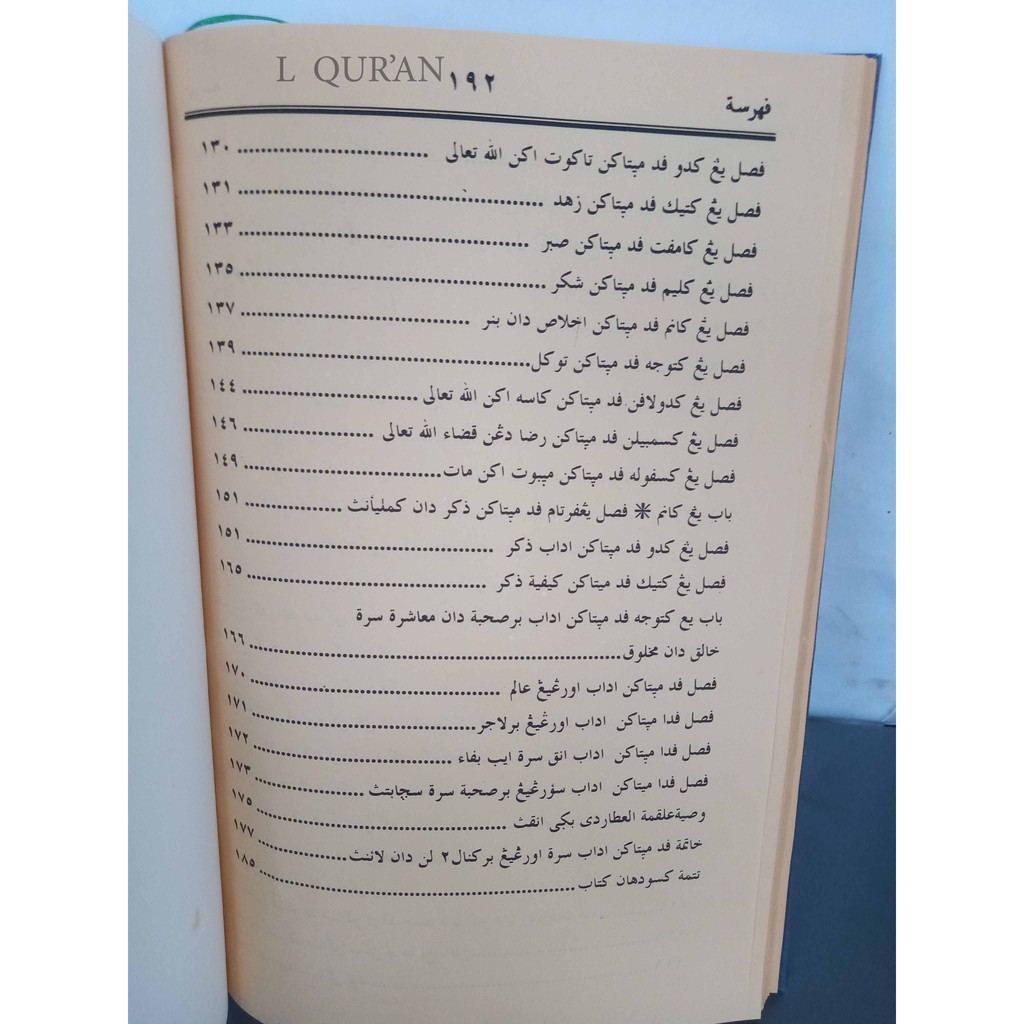 L QUR'AN
فهرسة ١٩٢
فصل يڠ كدو فد مڽتاكن تاكوت اكن الله تعالى ................ ١٣٠
فصل يڠ كتيك فد مڽتاكن زهد ................ ١٣١
فصل يڠ كامفت فد مڽتاكن صبر ................ ١٣٣
فصل يڠ كليم فد مڽتاكن شكر ................ ١٣٥
فصل يڠ كانم فد مڽتاكن اخلاص دان بنر ................ ١٣٧
فصل يڠ كتوجه فد مڽتاكن توكل ................ ١٣٩
فصل يڠ كدولافن فد مڽتاكن كاسه اكن الله تعالى ................ ١٤٤
فصل يڠ كسمبيلن فد مڽتاكن رضا دڠن قضاء الله تعالى ................ ١٤٦
فصل يڠ كسفوله فد مڽتاكن مڽبوت اكن مات ................ ١٤٩
باب يڠ كانم ❋ فصل يڠفرتام فد مڽتاكن ذكر دان كمليأنث ................ ١٥١
فصل يڠ كدو فد مڽتاكن اداب ذكر ................ ١٥١
فصل يڠ كتيك فد مڽتاكن كيفية ذكر ................ ١٦٥
باب يع كتوجه فد مڽتاكن اداب برصحبة دان معاشرة سرة
خالق دان مخلوق ................ ١٦٦
فصل فد مڽتاكن اداب اورڠيڠ عالم ................ ١٧٠
فصل فدا مڽتاكن اداب اورڠيڠ برلاجر ................ ١٧١
فصل فدا مڽتاكن اداب انق سرة ايب بفاء ................ ١٧٢
فصل فدا مڽتاكن اداب سؤرڠيڠ برصحبة سرة سچابتث ................ ١٧٣
وصية علقمة العطاردى بكى انقث ................ ١٧٥
خاتمة فد مڽتاكن اداب سرة اورڠيڠ بركنال٢ لن دان لائنث ................ ١٧٧
تتمة كسودهان كتاب ................ ١٨٥